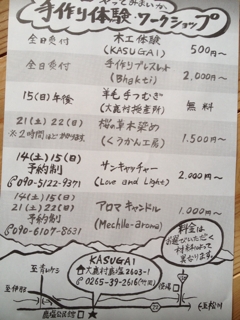 やってみまいか
手作り体験・ワークショップ
全日受付 木工体験 (KASUGAI) 500円〜
全日受付 手作りブレスレット (Bhakti) 2,000円〜
15(日)午後 羊毛手つむぎ (大鹿村挫産所) 無料
21(土)22(日) ※2時間ほどかかります 草木染め (くうかん工房) 1,500円〜
14(土)15(日) 予約制 090-5122-9371 サンキャッチャー (Love and Light) 2,000円〜
14(土)15(日)
21(土)22(日) 予約制 090-6107-8631 アロマキャンドル (Mechlle-aroma) 1,000円〜
料金は
お選びいただく
材料によって
異なります。
KASUGAI
大鹿村鹿塩2603-1
0265-39-2616
至伊那
鹿塩公民館
役場
至松川